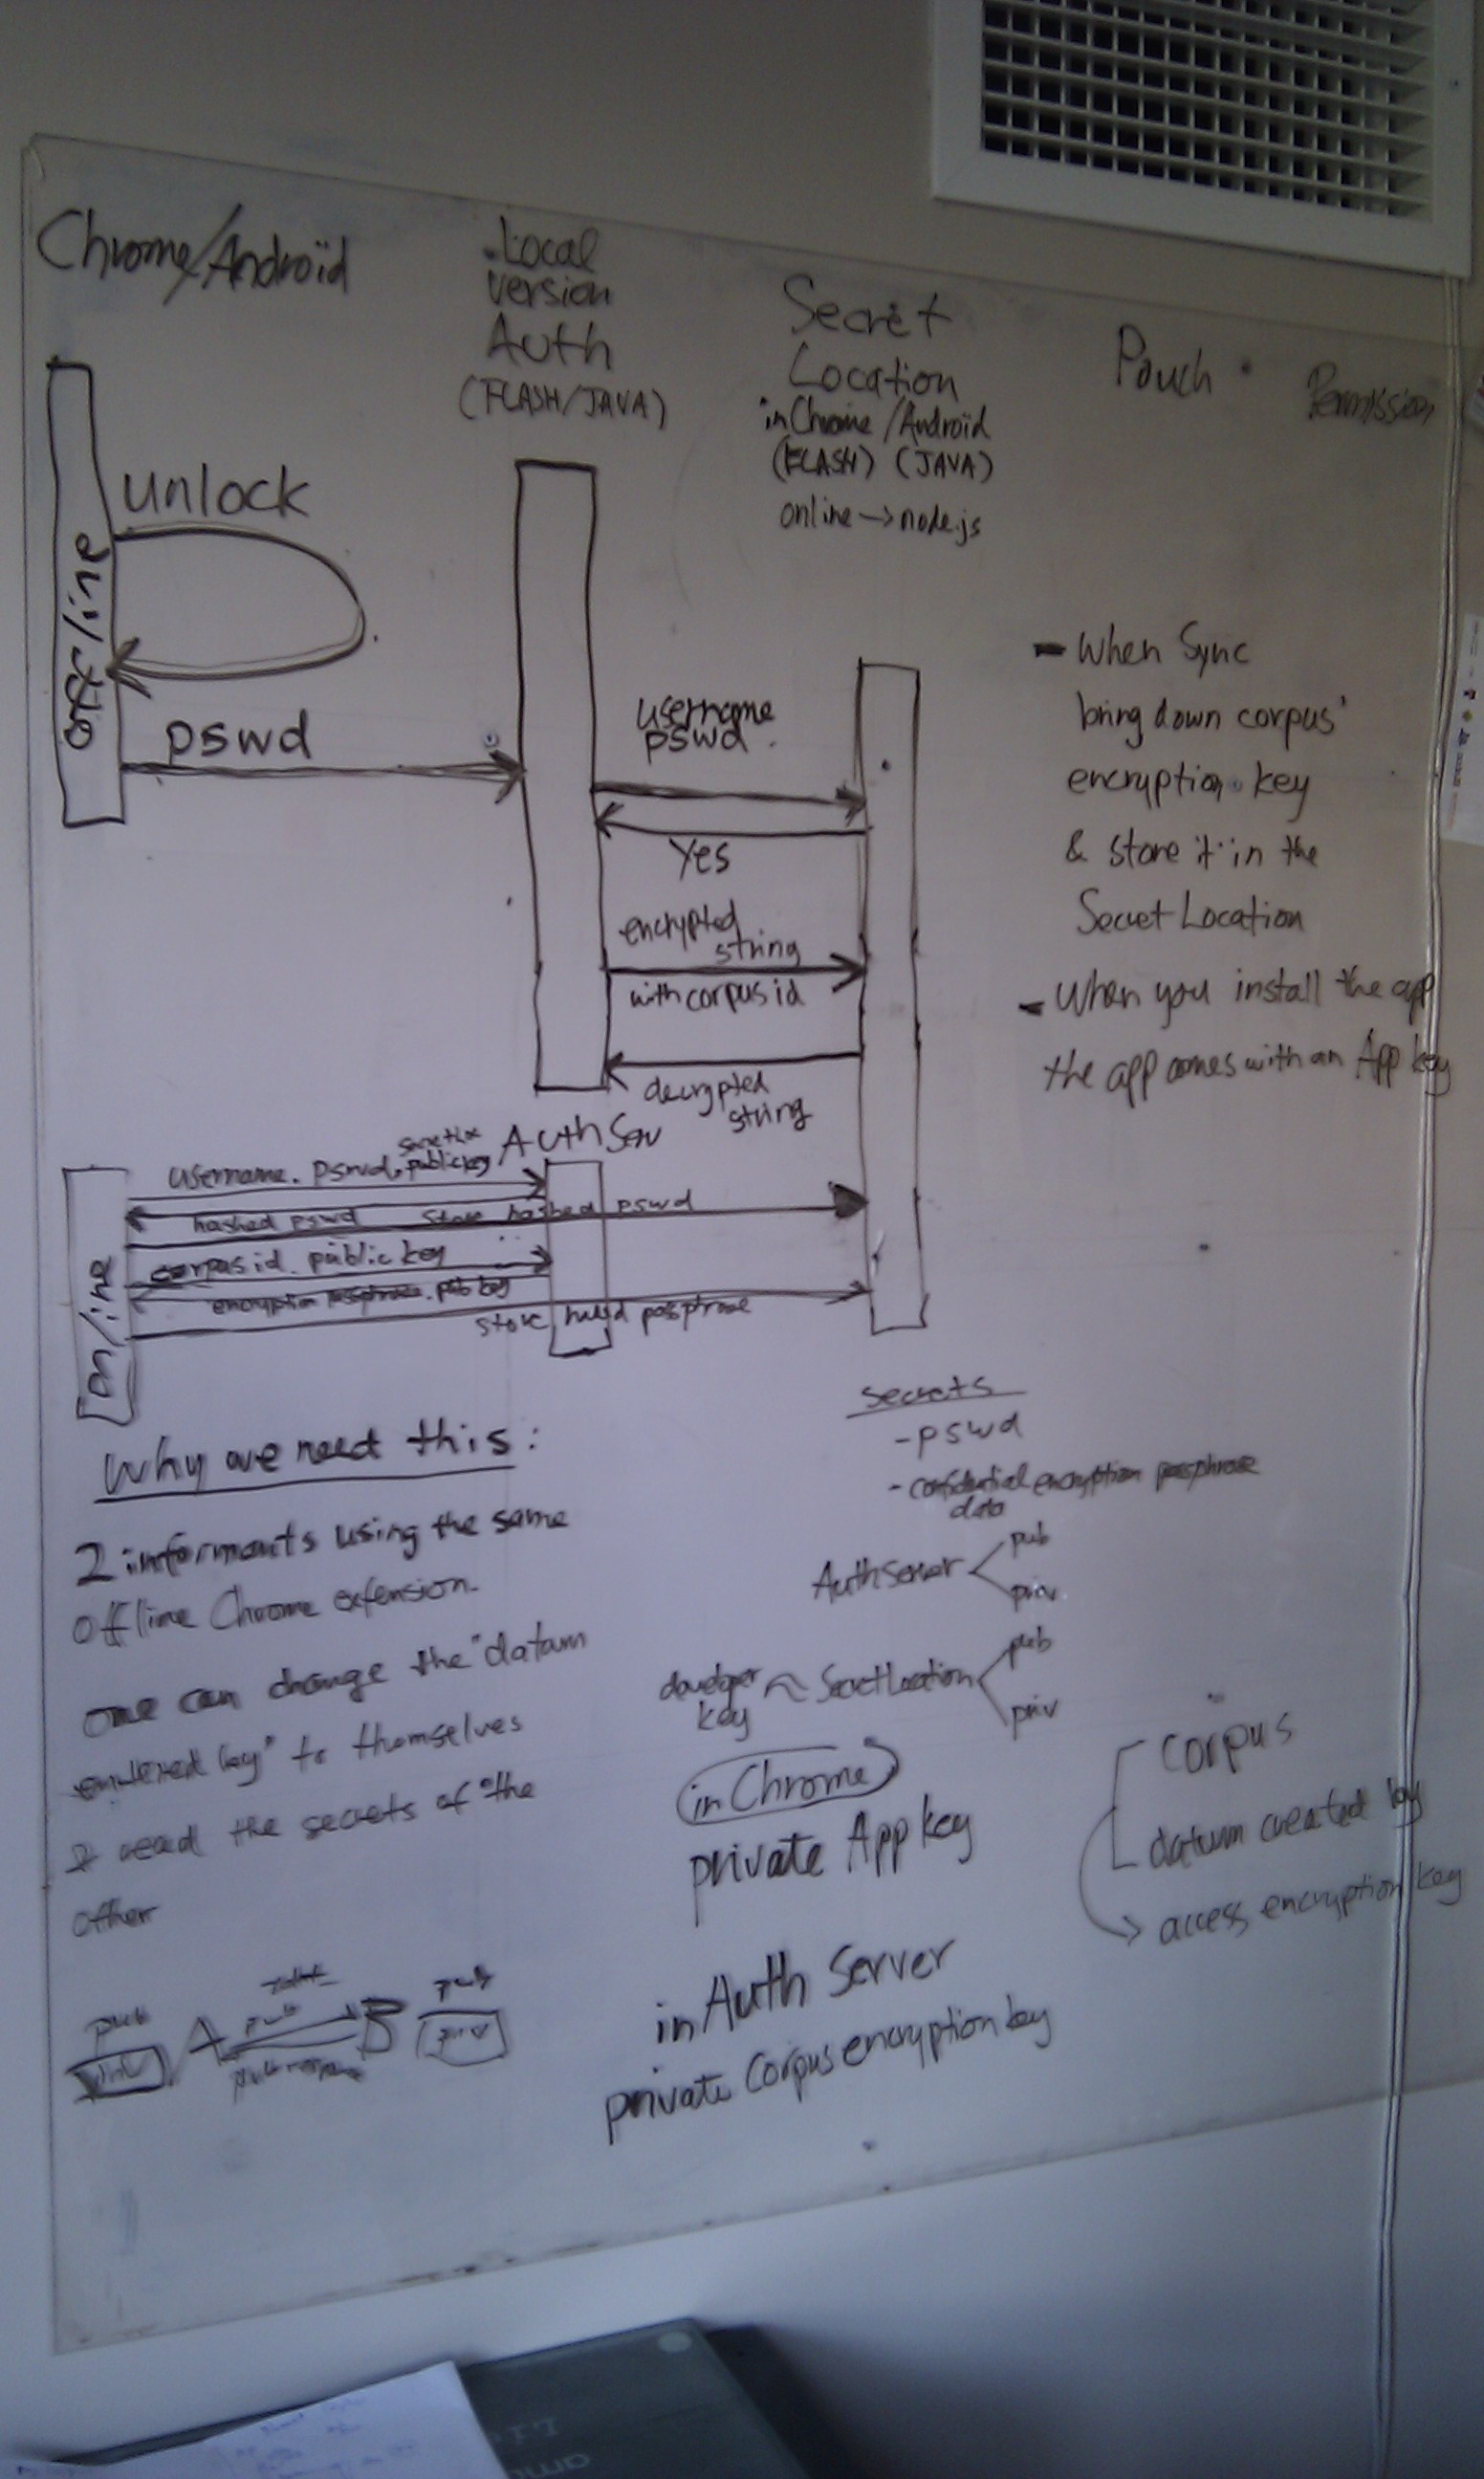 Chrome/Androïd
Local
version
Auth
(FLASH/JAVA)
Secret
Location
in Chrome/Androïd
(FLASH) (JAVA)
online → node.js
Pouch
Permission
offline
unlock
pswd
username
pswd
Yes
encrypted
string
with corpus id
decrypted
string
- When Sync
bring down corpus'
encryption key
& store it in the
Secret Location
- When you install the app
the app comes with an App key
Auth Serv
online
username. pswd. public key
hashed pswd
store hashed pswd
corpus id. public key
encryption passphrase. pub key
store passphrase
Why we need this:
2 informants using the same
Offline Chrome extension.
one can change the "datum
key" to themselves
& read the secrets of the
other
Secrets
- pswd
- confidential encryption passphrase
data
AuthServer
pub
priv
developer
key
SecretLocation
pub
priv
in Chrome
private App key
in Auth Server
private Corpus encryption key
corpus
datum created by
access encryption key
pub
priv
A
pub
B
pub
priv